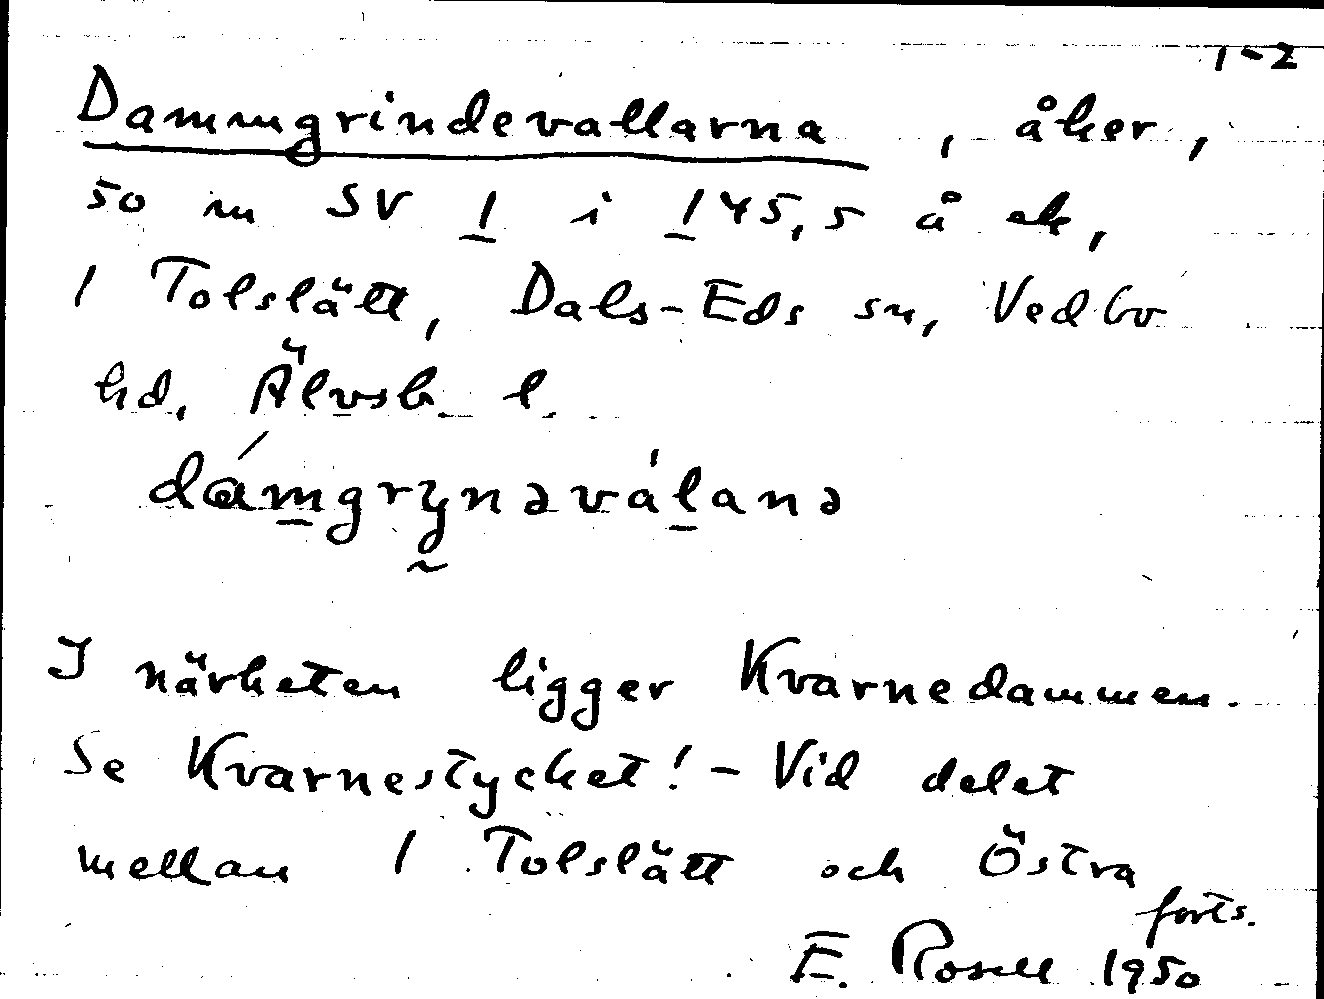 1-2
Dammgrindevallarna, åker,
50 m SV 1 i 145,5 å ek,
1 Tolslätt, Dals-Eds sn, Vedbo
hd, Älvsb. l.
dámgrynəválanə
I närheten ligger Kvarnedammen.
Se Kvarnestycket! - Vid delet
mellan 1 Tolslätt och Östra
forts.
E. Rosell 1950